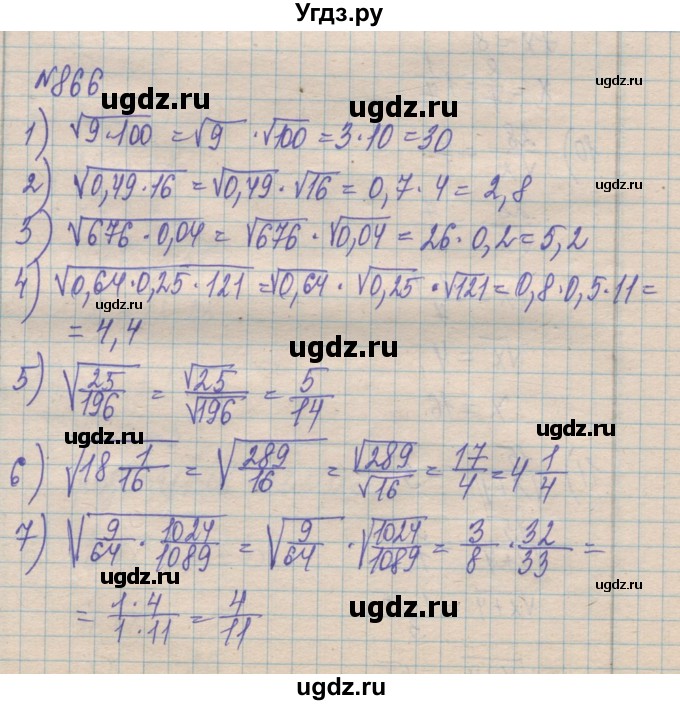 Угдз.ру
№866
ugdz.ru
ugdz.ru
ugdz.ru
1) √(9·100) = √9 · √100 = 3·10 = 30
2) √(0,49·16) = √0,49 · √16 = 0,7·4 = 2,8
ugdz.ru
ugdz.ru
3) √(676·0,04) = √676 · √0,04 = 26·0,2 = 5,2
4) √(0,64·0,25·121) = √0,64 · √0,25 · √121 = 0,8·0,5·11 =
ugdz.ru
= 4,4
ugdz.ru
5) √(25/196) = √25/√196 = 5/14
ugdz.ru
ugdz.ru
6) √(18 1/16) = √(289/16) = √289/√16 = 17/4 = 4 1/4
ugdz.ru
7) √(9/64 · 1024/1089) = √(9/64) · √(1024/1089) = 3/8 · 32/33 =
ugdz.ru
ugdz.ru
= (1·4)/(1·11) = 4/11
ugdz.ru
ugdz.ru